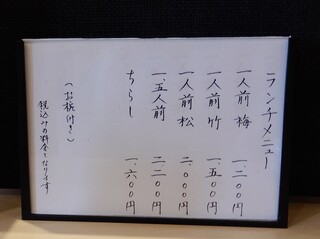 ランチメニュー
一人前 梅 一、二〇〇円
一人前 竹 一、五〇〇円
一人前 松 二、〇〇〇円
一、五人前 二、二〇〇円
ちらし 一、六〇〇円
(お椀付き)
税込みの料金となります